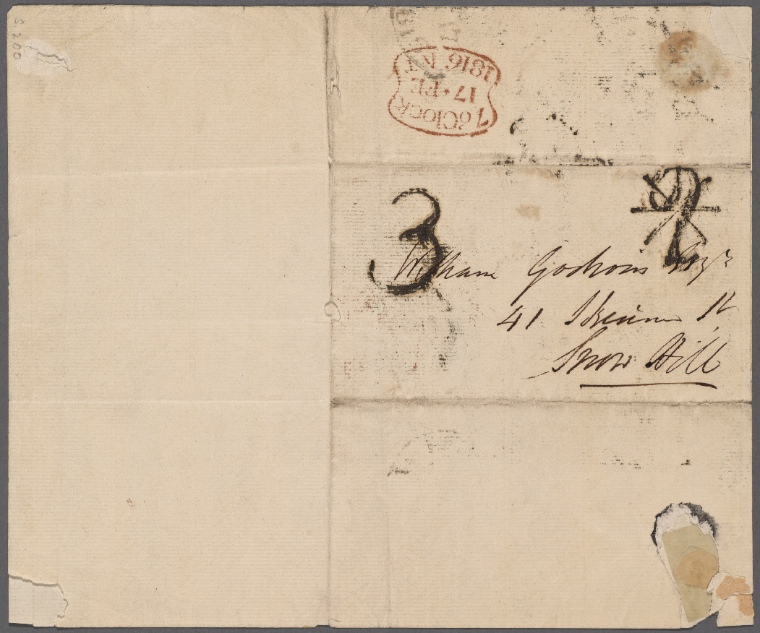 S 200
7 o'Clock
17 • FE
1816 NT
3
2
William Godwin Esqr
41 Skinner St
Snow Hill